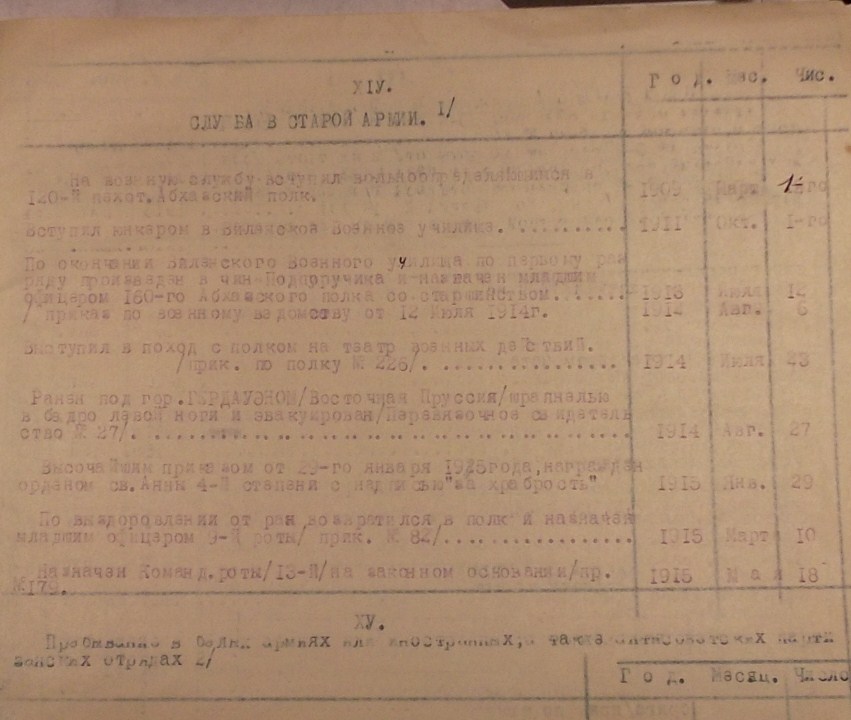 XIУ.
Год. Мес. Чис.
СЛУЖБА В СТАРОЙ АРМИИ. 1/
На военную службу вступил вольноопределяющимся в
120-й пехот. Абхазский полк. 1909 Март 1го
Вступил юнкером в Виленское Военное училище. 1911 Окт. 1-го
По окончании Виленского Военного училища по первому раз
ряду произведен в чин Подпоручика и назначен младшим
офицером 160-го Абхазского полка со старшинством....... 1913 Июля 12
/ приказ по военному ведомству от 12 Июля 1914г. 1914 Авг. 6
Выступил в поход с полком на театр военных действий.
/прик. по полку № 226/. ................ 1914 Июля 23
Ранен под гор. ГЕРДАУЭНОМ/Восточная Пруссия/шрапнелью
в бедро левой ноги и эвакуирован/Перевязочное свидетель
ство № 27/. .................................. 1914 Авг. 27
Высочайшим приказом от 29-го января 1925года, награжден
орденом св. Анны 4-й степени с надписью"за храбрость" 1915 Янв. 29
По выздоровлении от ран возвратился в полк и назначен
младшим офицером 9-й роты/ прик. № 82/................. 1915 Март 10
Назначен Команд. роты/13-й/на законном основании/пр. 1915 Мая 18
№179.
XУ.
Пребывание в белых армиях или иностранных, а также антисоветских парти
занских отрядах 2/
Год. Месяц. Число